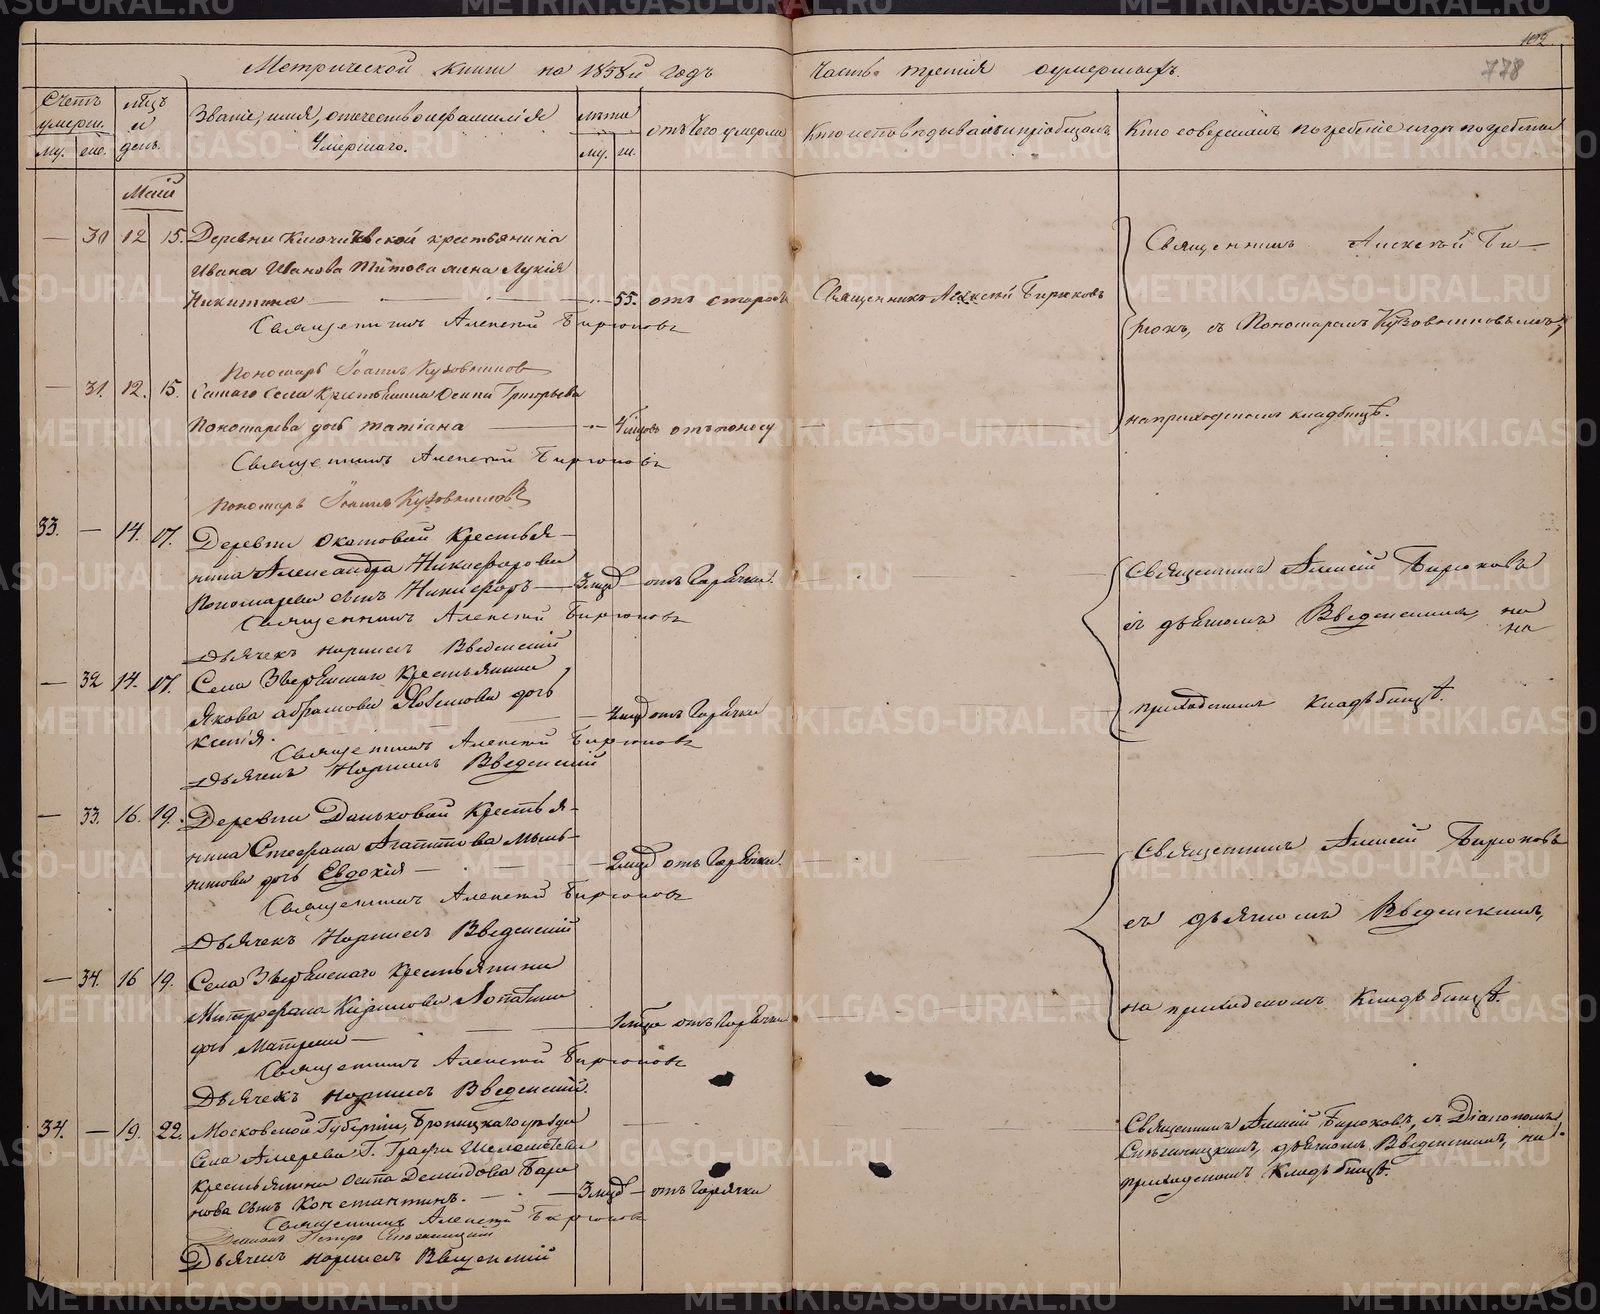 102.
778
Метрической книги на 1858й годъ
Часть третія о умершихъ.
Счетъ умерш.
му. же.
мѣцъ и день.
Званіе, имя, отечество и фамилія Умершаго.
лѣта
му. ж.
отъ чего умеръ
Кто исповѣдывалъ и пріобщалъ
Кто совершилъ погребеніе и гдѣ погребены
Май
— 30 12 15. Деревни Ключиквской крестьянина
Ивана Иванова Титова жена Лукія
Никитина — 55. отъ старости Священникъ Алексѣй Бирюковъ
Священникъ Алексѣй Бирюковъ
Пономарь Іоаннъ Кузовниковъ
Священникъ Алексѣй Би—
рюковъ, съ Пономаремъ Кузовниковымъ,
на приходскомъ кладбищѣ.
— 31. 12. 15. Самаго села крестьянина Осипа Григорьева
Пономарева дочь Татіана — 4 мѣцовъ отъ поносу
Священникъ Алексѣй Бирюковъ
Пономарь Іоаннъ Кузовниковъ
33. — 14. 17. Деревни Окатовой Крестья-
нина Александра Никифорова
Пономарева сынъ Никифоръ — 3 мѣц — отъ Горячки.
Священникъ Алексѣй Бирюковъ
Дьячекъ Корнилъ Введенскій
Священникъ Алексѣй Бирюковъ
съ дьячкомъ Введенскимъ, на
на
приходскомъ Кладьбищѣ.
— 32 14. 17. Села Звѣринскаго Крестьянина
Якова Абрамова дочь
Ксенія. — мѣц отъ Горячки
Священникъ Алексѣй Бирюковъ
Дьячекъ Корнилъ Введенскій
— 33. 16. 19. Деревни Даньковой Крестья-
нина Стефана Агапитова Мыль-
никова дочь Евдокія — 2 мѣц отъ Горячки.
Священникъ Алексѣй Бирюковъ
Дьячекъ Корнилъ Введенскій
Священникъ Алексѣй Бирюковъ
съ дьячкомъ Введенскимъ,
на приходскомъ Кладьбищѣ.
— 34. 16 19. Села Звѣринскаго Крестьянина
Митрофана Кирилова Лопатина
дочь Матрена — 1 мѣца отъ Горячки
Священникъ Алексѣй Бирюковъ
Дьячекъ Корнилъ Введенскій.
34. — 19. 22. Московской Губерніи, Бронницкаго уѣзда
Села Г. Графа Шереметева
крестьянина Осипа Демидова Бара
нова сынъ Константинъ. — 3 мѣц — отъ Горячки
Священникъ Алексѣй Бирюковъ
Діаконъ Петръ
Дьячекъ Корнилъ Введенскій
Священникъ Алексѣй Бирюковъ, съ Діакономъ
дьячкомъ Введенскимъ, на
приходскомъ Кладьбищѣ.
METRIKI.GASO-URAL.RU